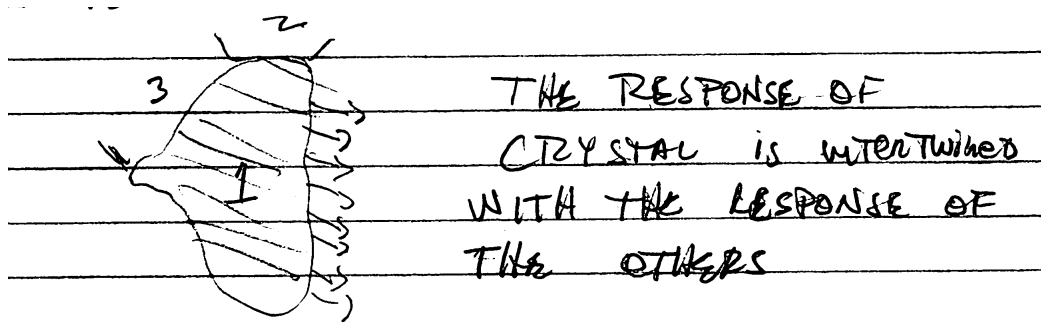 2
3
1
THE RESPONSE OF
CRYSTAL is inTERTwineD
WITH THE RESPONSE OF
THE OTHERS